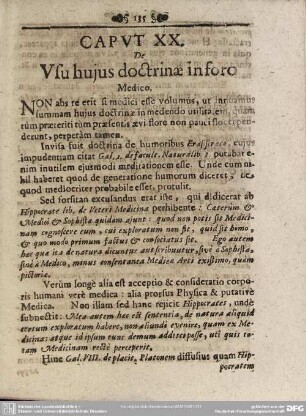 135
CAPVT XX.
De
Vsu hujus doctrinæ in foro
Medico.
NON abs re erit si medici esse volumus, ut
summam hujus doctrinæ in medendo utilitatem, quam
rum præteriti tum præsentis ævi flore non pauci
derunt, perpetàm tamen.
Invisa fuit doctrina de humoribus Erasistrato, cujus
impudentiam citat Gal. 2. de facult. Naturalib. putabat e-
nim inutilem ejusmodi meditationem esse. Unde cum ni-
hil haberet quod de generatione humorum diceret, ne
quod mediocriter probabile esset, protulit.
Sed forsitan exculandus erat iste, qui didicerat ab
Hippocrate lib. de Veteri Medicina perhibente: Cæterùm &
Medici & Sophistæ quidam ajunt: quod non potis sit Medici-
nam cognoscere eum, cui exploratum non sit, quid sit homo,
& quo modo primum factus & consociatus sit. Ego autem
hæc quæ ita de natura dicuntur aut scribuntur, sive à Sophista,
sive à Medico, minus consentanea Medica Arti existimo, quàm
pictoria.
Verùm longè alia est acceptio & consideratio corpo-
ris humani verè medica: alia prorsus Physica & putativè
Medica. Non illam sed hanc rejicit Hippocrates, undè
subnectit: Mea autem hæc est sententia, de natura aliquid
certum exploratum habere, non aliundè evenire, quam ex Me-
dicina: atque id ipsum tunc demum addiscet posse, ubi quis to-
tam Medicinam rectè perceperit.
Hunc Gal. VIII. de placit. Platonem diffusius quam Hip-
pocratem